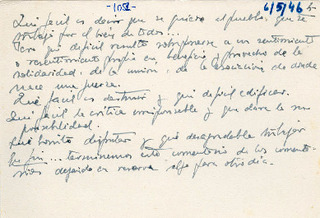 -1052- 6/5/46
Qué fácil es decir que se quiere al pueblo, que se
trabaja por el bien de todos...
Pero qué difícil resulta sobreponerse a un sentimiento
o resentimiento propio en beneficio y provecho de la
solidaridad, de la unión, de la asociación de donde
nace una fuerza.
Qué fácil es destruir y qué difícil edificar.
Qué fácil la crítica irresponsable y que dura la
responsabilidad.
Qué bonito disfrutar y qué desagradable trabajar
En fin... terminemos este comentario de los comenta-
rios dejando en reserva algo para otro día.